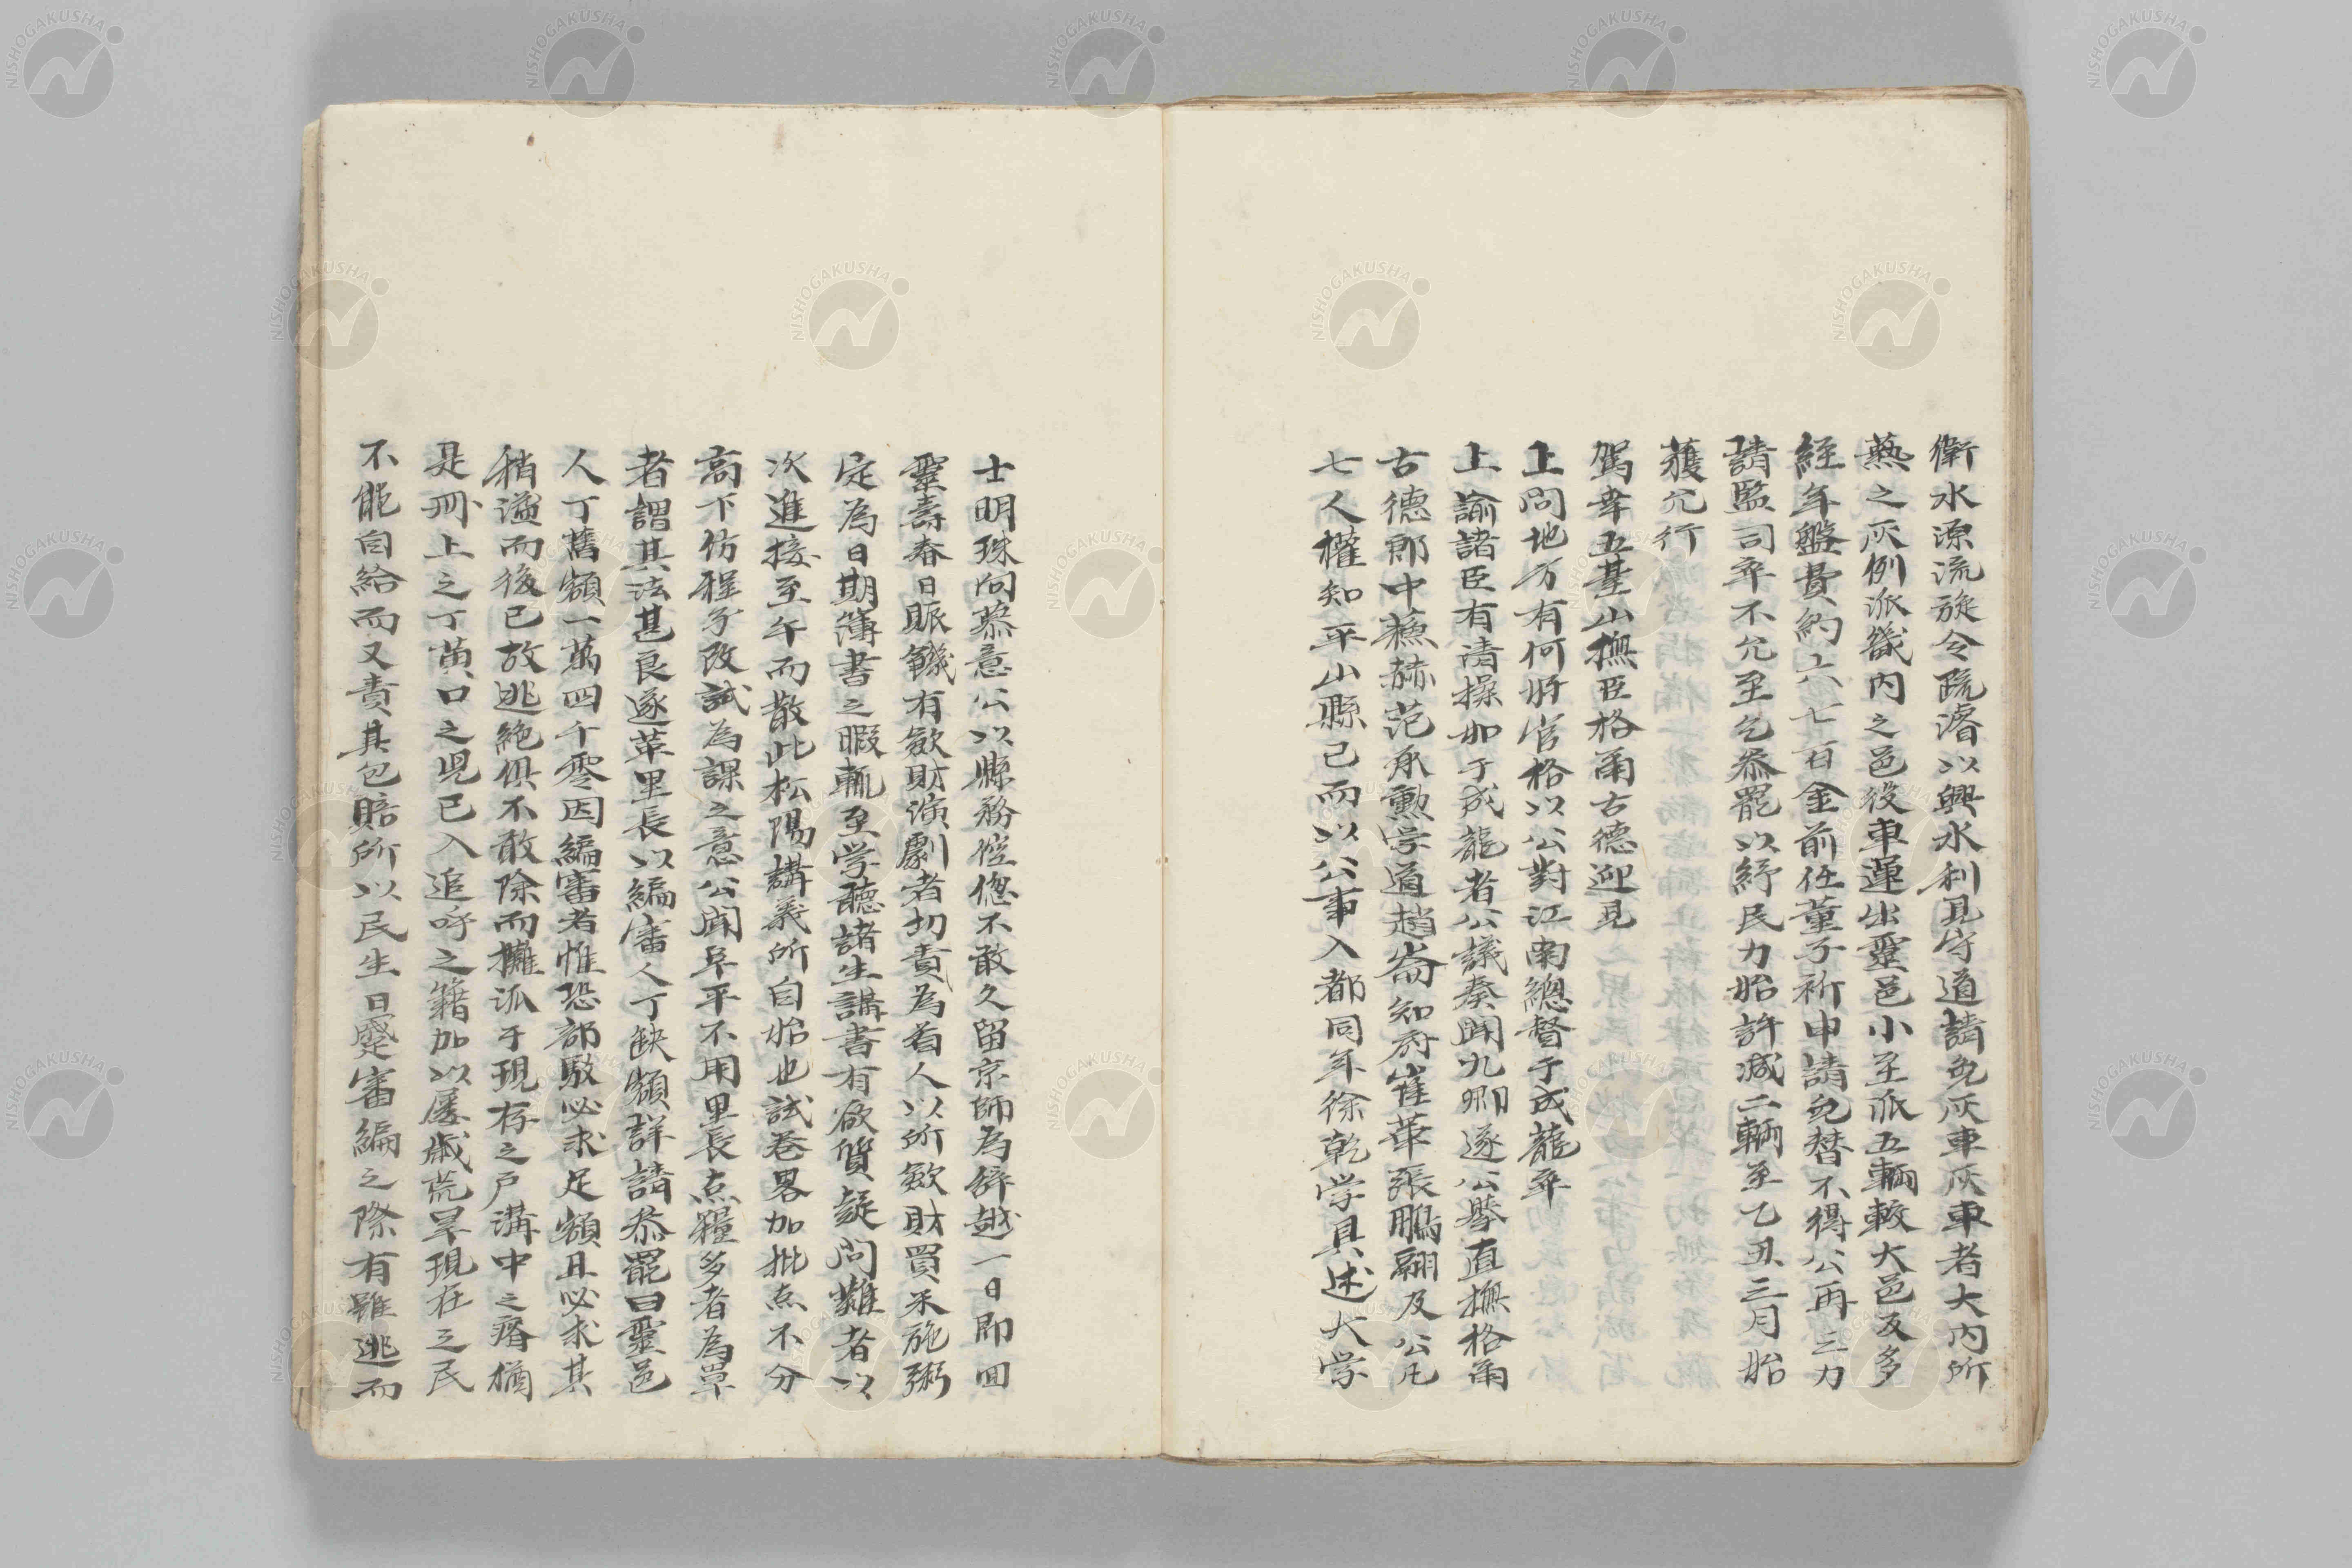 衛水源流旋令疏濬以興水利見守道請免灰車灰車者大内所
爇之灰例派畿内之邑役車運出靈邑小至派五輛較大邑反多
経年盤費約六七百金前任董子祈申請免替不得公再三力
請監司卒不允至乞叅罷以紓民力始許減二輛至乙丑三月始
蒦允行
駕幸五䑓山撫臣格爾古德迎見
上問地方有何好官格以公對江南總督于成龍卒
上諭諸臣有清操如于成龍者公議奏聞九卿遂公舉直撫格爾
古德郎中蘓赫范承勲学道趙崙知府崔華張鵬翮及公凡
七人權知平山縣已而以公事入都同年徐乾学具述大学
士明珠向慕意公以縣務倥偬不敢久留京師為辞越一日即回
靈壽春日賑饑有歛財演劇者切責為首人以所歛財買米施粥
定為日期簿書之暇輒至学聽諸生講書有欲質疑問難者以
次進接至午而散此松陽講義所自始也試卷畧加批点不分
高下仿程子改試為課之意公聞阜平不用里長点糧多者為單
者謂其法甚良遂革里長以編審人丁缺額詳請叅罷曰靈邑
人丁舊額一萬四千零因編審者惟恐部駁必求足額且必求其
稍溢而後已故逃絶俱不敢除而攤派于現存之戸溝中之瘠猶
是冊上之丁黄口之児已入追呼之籍加以屡歳荒旱現在之民
不能自給而又責其包賠所以民生日蹙審編之際有雖逃而